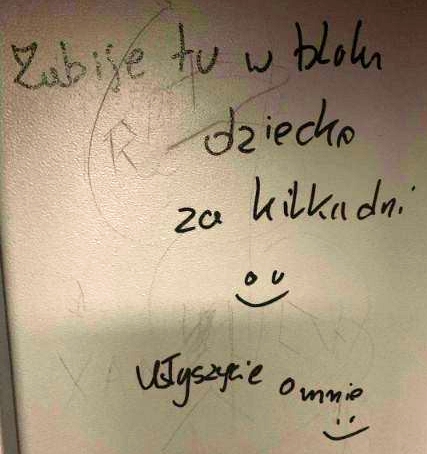 Zabije tu w bloku
dziecko
za kilka dni
Usłyszycie o mnie